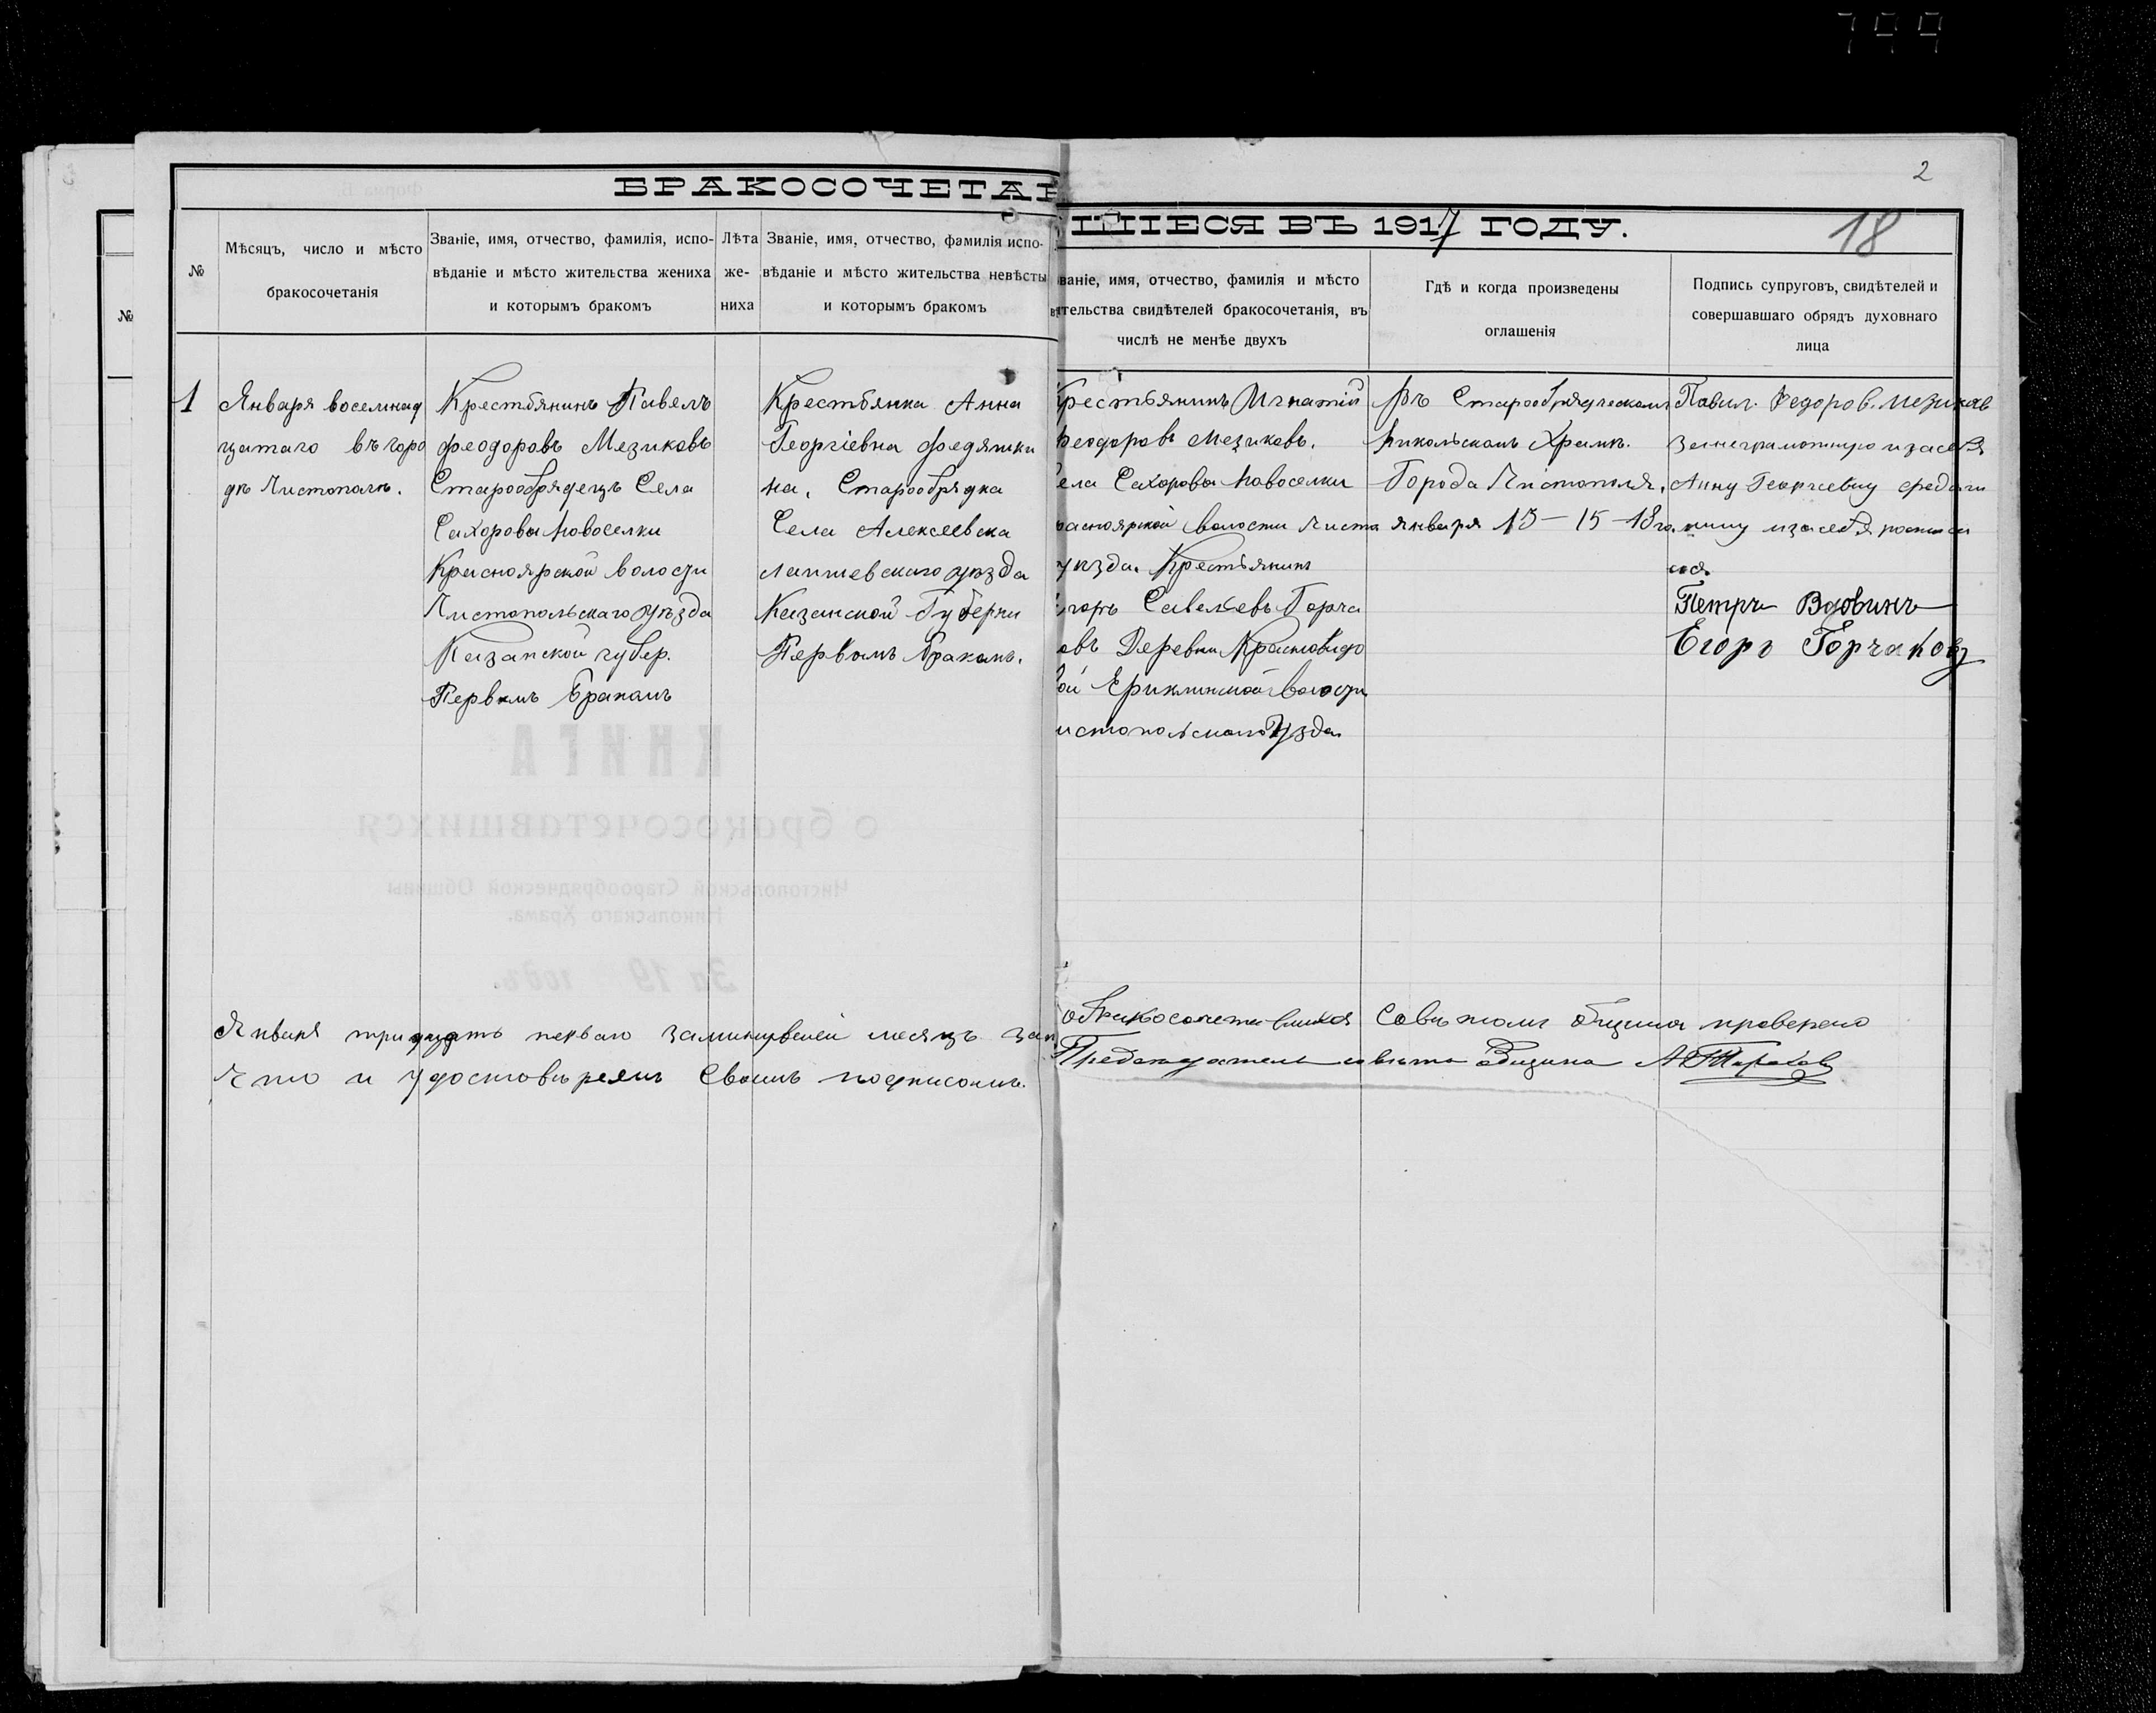 799
2
18
БРАКОСОЧЕТАВ
ШІЕСЯ ВЪ 1917 ГОДУ.
№
№
Мѣсяцъ, число и мѣсто
бракосочетанія
Званіе, имя, отчество, фамилія, испо-
вѣданіе и мѣсто жительства жениха
и которымъ бракомъ
Лѣта
же-
ниха
Званіе, имя, отчество, фамилія испо-
вѣданіе и мѣсто жительства невѣсты
и которымъ бракомъ
ваніе, имя, отчество, фамилія и мѣсто
тельства свидѣтелей бракосочетанія, въ
числѣ не менѣе двухъ
Гдѣ и когда произведены
оглашенія
Подпись супруговъ, свидѣтелей и
совершавшаго обрядъ духовнаго
лица
1
Января восемнад
цатаго въ горо
дѣ Чистополѣ.
Крестьянинъ Павелъ
Феодоровъ Мезиковъ
Старообрядецъ Села
Сахоровы Новоселки
Красноярской волости
Чистопольскаго уѣзда
Казанской губер.
Первымъ Бракомъ
Крестьянка Анна
Георгіевна Федяшки
на. Старообрядка
Села Алексеевска
Лаишевскаго уѣзда
Казанской Губерни
Первымъ Бракомъ.
Крестьянинъ Игнатій
Феодоровъ Мезиковъ.
Села Сахоровы Новоселки
расноярской волости Чисто
уѣзда. Крестьянинъ
Егоръ Савельевъ Горча
овъ Деревни Красновидо
ой Ериклинской волости
истопольскаго Уѣзда
Въ Старообрядческомъ
Никольскомъ Храмѣ.
Города Чистополя.
Января 13-15-18го.
Павил. Федоров. Мезиков
за неграмотную и за себя
Анну Георгіевну Федяш
кину и за себя росписал
ся
Петръ Вдовинъ
Егоръ Горчаковъ
КНИГА
о бракосочетавшихся
Чистопольской Старообрядческой Общины
Никольскаго Храма.
За 19 годъ.
Января тридцать перваго за минувшей месяцъ
о бракосочетавшихся Советомъ общины проверено
Что и удостовѣряемъ Своимъ подписомъ.
Председатель совета общины